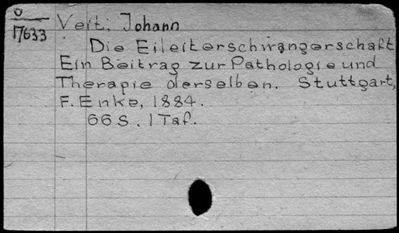 O
17633
Veit, Johann
Die Eileiterschwangerschaft
Ein Beitrag zur Pathologie und
Therapie derselben. Stuttgart,
F. Enke, 1884.
66 S. 1 Taf.